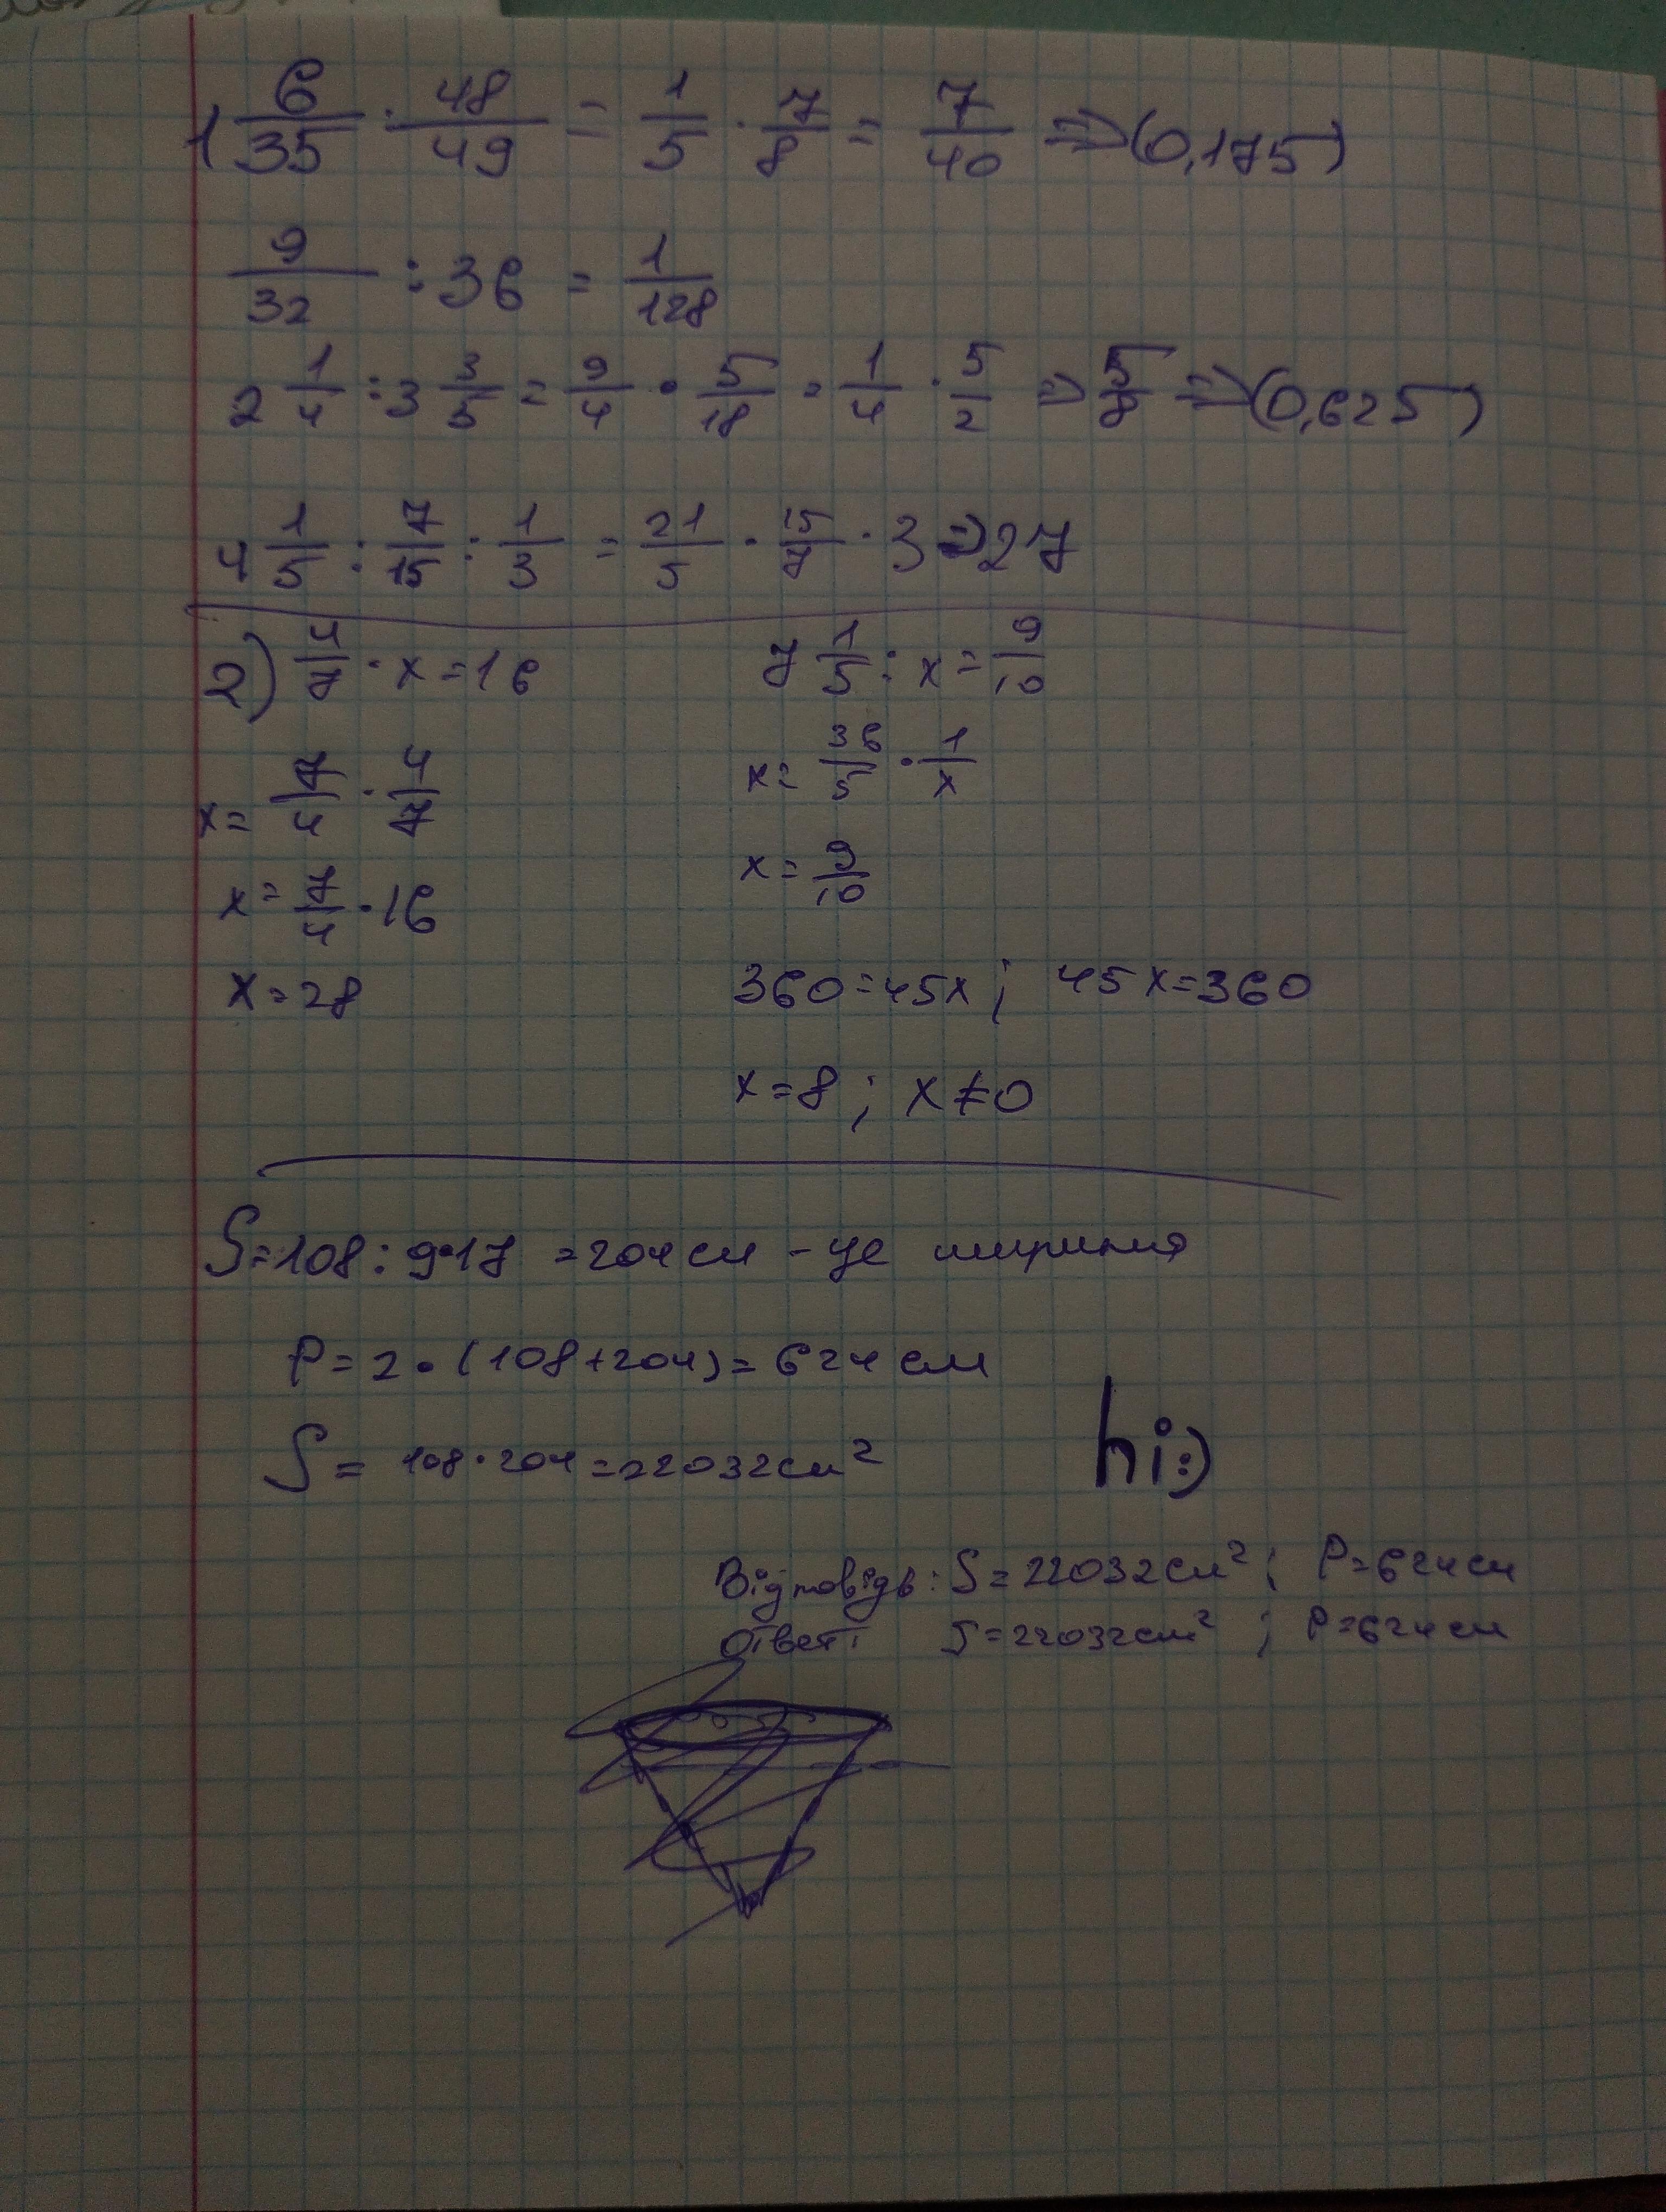 1 6/35 : 48/49 = 1/5 · 7/8 = 7/40 => (0,175)
9/32 : 36 = 1/128
2 1/4 : 3 3/5 = 9/4 · 5/18 = 1/4 · 5/2 => 5/8 => (0,625)
4 1/5 : 7/15 : 1/3 = 21/5 · 15/7 · 3 => 27
2) 4/7 · x = 16
x = 7/4 · 4/7
x = 7/4 · 16
x = 28
7 1/5 : x = 9/10
x = 36/5 · 1/x
x = 9/10
360 = 45x ; 45x = 360
x = 8 ; x ≠ 0
S = 108 : 9·17 = 204 см - це ширина
P = 2 · (108 + 204) = 624 см
S = 108 · 204 = 22032 см²
hi:)
Відповідь: S = 22032 см² ; P = 624 см
Ответ: S = 22032 см² ; P = 624 см